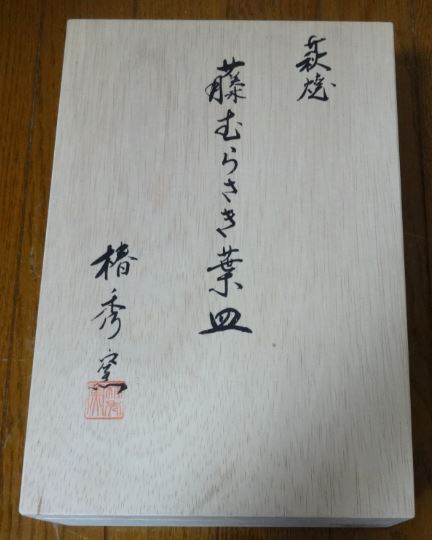 萩焼
藤むらさき葉皿
椿秀窯